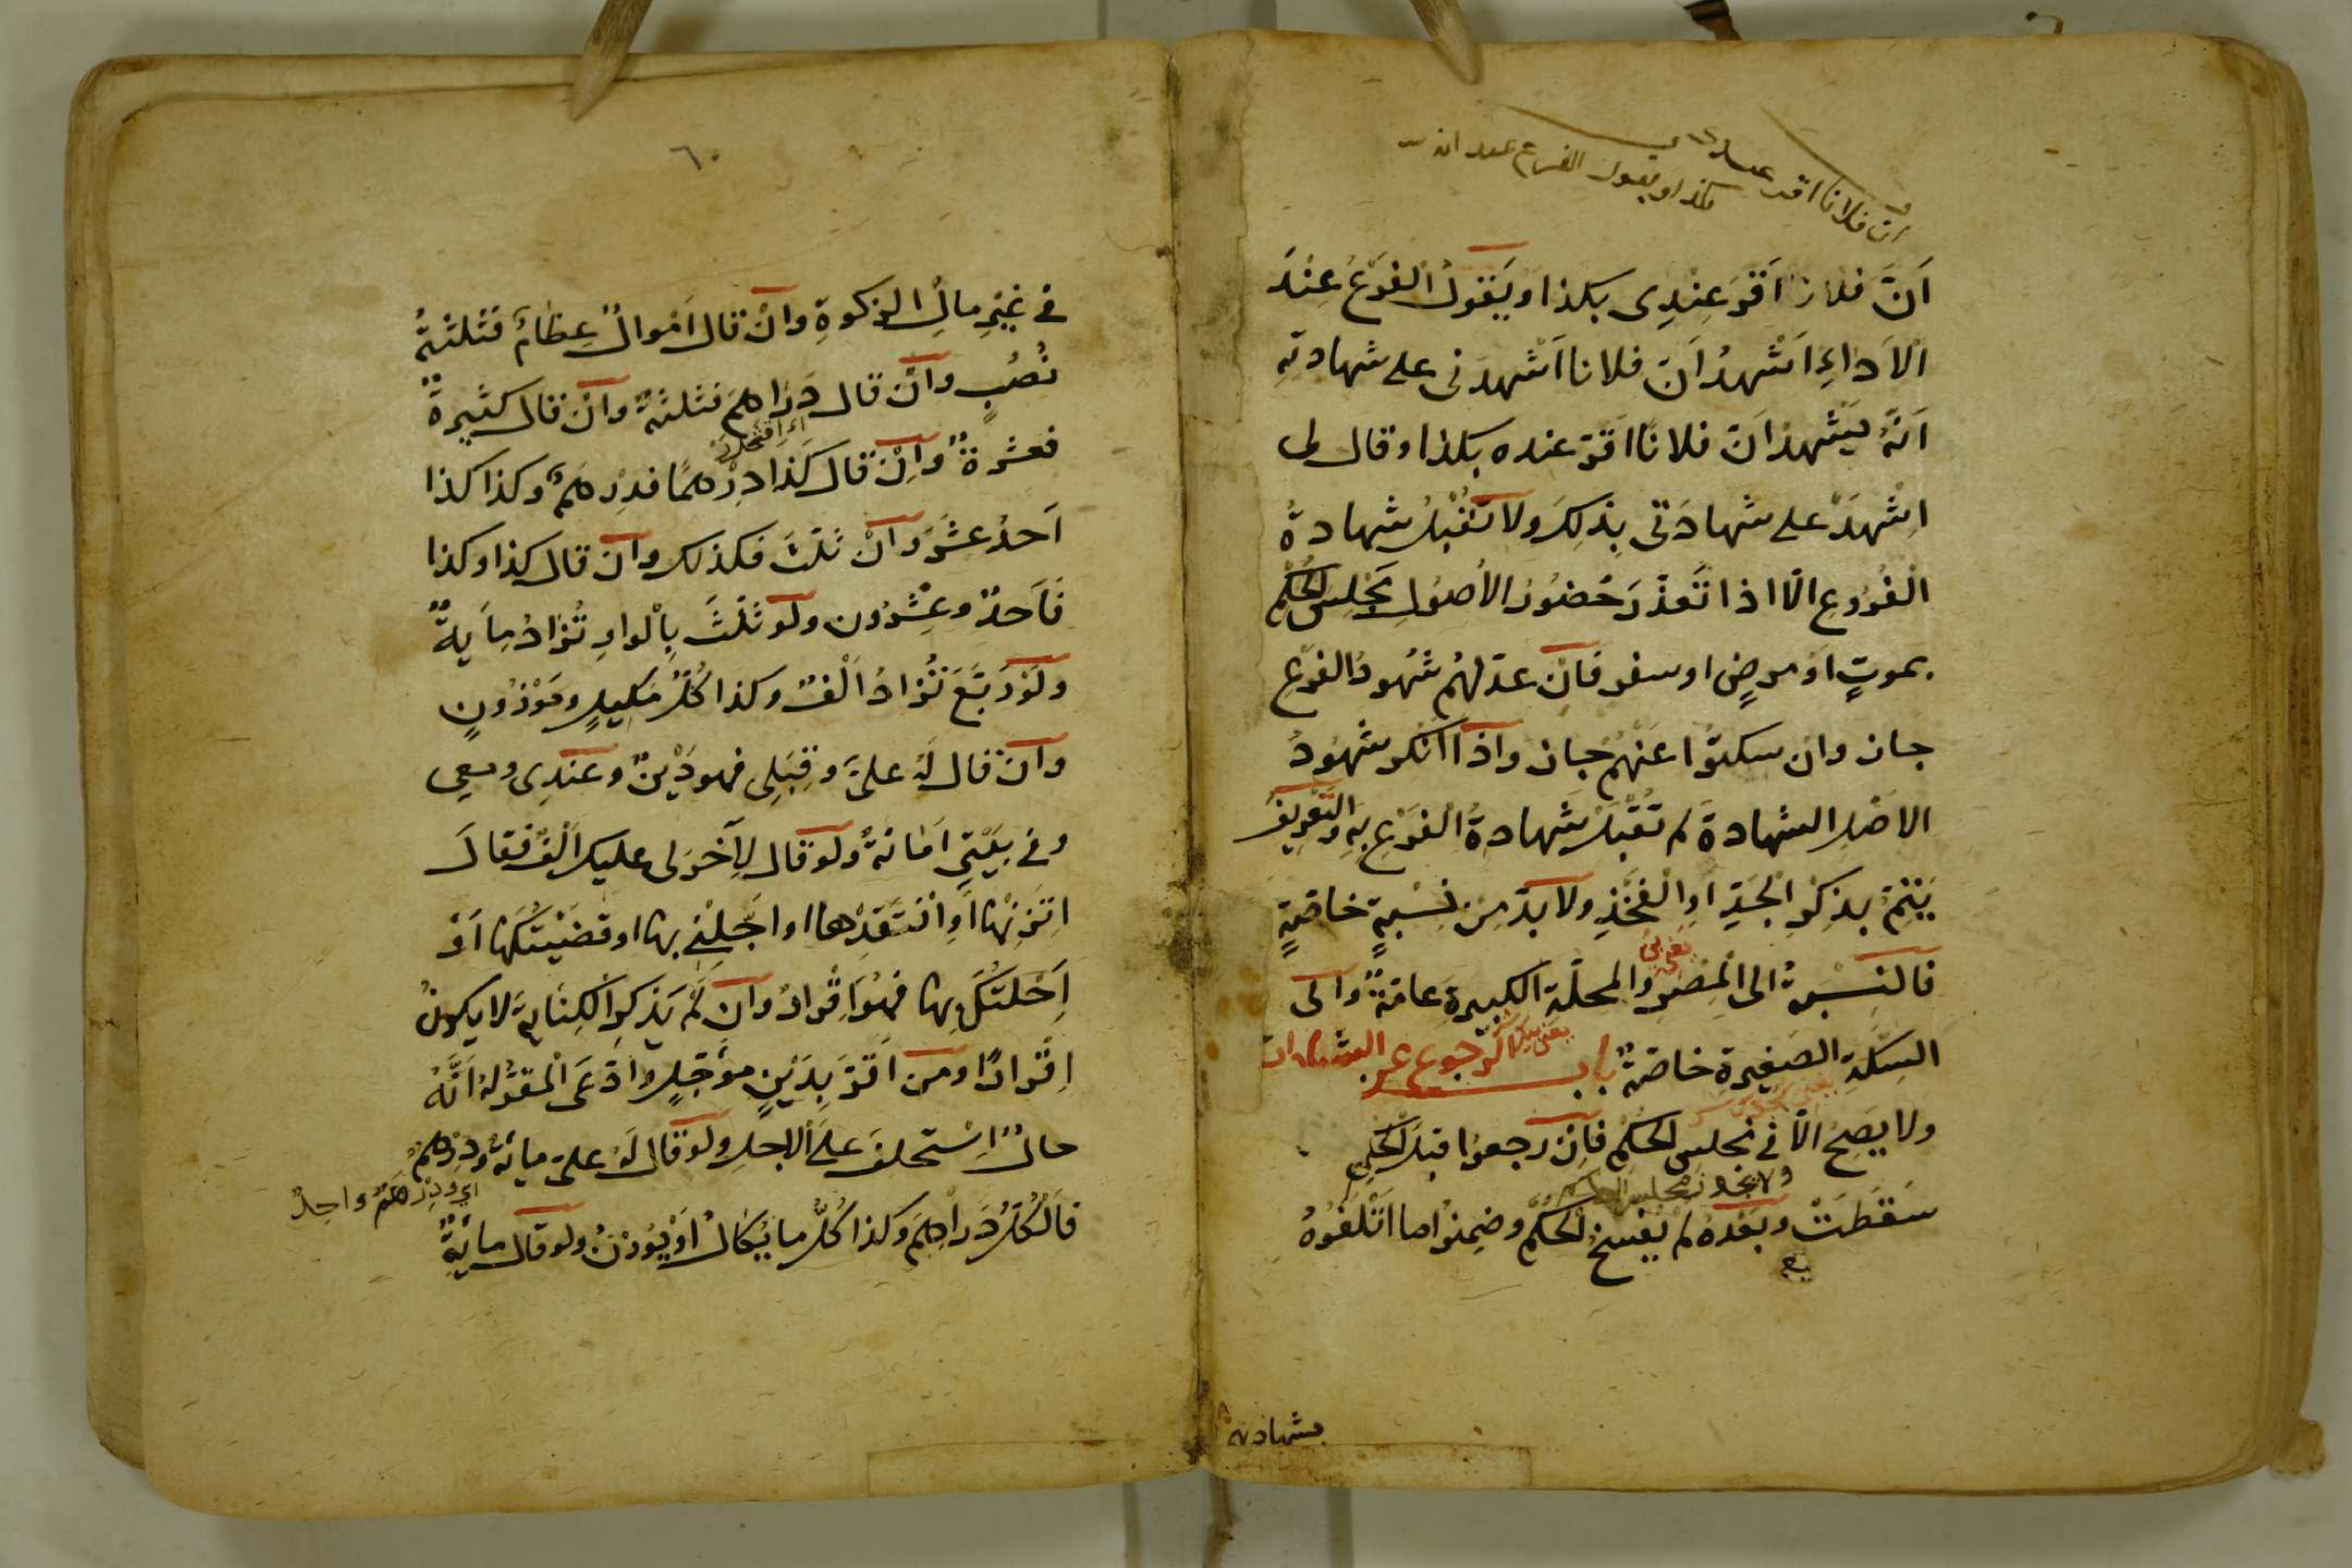 ان فلانا اقر عندى
بكذا ويقول الفرع عند
اَنَّ فلانا اَقرَّ عِنْدِى بكذا ويَقولُ الفَرْعُ عِنْدَ
الاَداءِ اَشْهدُ اَنّ فلانا اَشْهدَنى على شهادته
اَنّهُ يَشْهدُ انّ فلانًا اقرّ عنده بكذا وقال لى
اِشْهَدْ على شهادَتى بِذلِكَ ولا تُقْبلُ شهادةُ
الْفُرُوعِ الّا اذا تَعَذَّرَ حُضُورُ الاُصُولِ مَجْلِسَ الحُكْمِ
بموتٍ اَوْ مرضٍ او سفر فاِنْ عدّلهُم شُهودُ الفَرْعِ
جاز وان سكتوا عَنْهُم جاز واذا انكر شهودُ
الاصْلِ الشهادةَ لم تُقْبَلْ شَهادةُ الفَرْعِ بهِ والتَّعْريفُ
يَتِمُّ بذِكْرِ الْجَدِّ اَوِ الْفَخِْذِ ولا بدّ مِنْ نِسْبةٍ خاصّةٍ
فالنِسْبةُ الى الْمِصْرِ والمحلّة الكبيرةِ عامّةٌ والى
السِكّةِ الصَغيرة خاصّةٌ باب الرجوع عن الشهادات
ولا يَصِحُّ الّا فى مجلس الحكْمِ فاِنْ رجعوا قبلَ الحُكْمِ
سَقطَتْ وبَعْدهُ لم يُفْسَخِ الحُكْمُ وضَمِنُوا ما اَتْلَفُوهُ
بشهادته
٦٠
فى غَيْرِ مالِ الزكوةِ وانْ قال اَمْوالٌ عِظامٌ فثلثةُ
نُصُبٍ وانْ قال دَراهمَ فثلثةٌ وانْ قال كثيرةٌ
فعشرةٌ وانْ قال كَذا دِرْهمًا فدِرْهَمٌ وكذا كذا
اَحدَ عشَرَ وانْ ثَلّثَ فكذلك وان قال كذا وكذا
فَاَحدٌ وعِشْرُون ولو ثلّثَ بِالْواوِ تُزادُ مِايةٌ
ولَوْ رَبّعَ تُزادُ اَلْفٌ وكذا كُلُّ مَكيلٍ ومَوْزُونٍ
وانْ قال لهُ علىَّ وقِبَلِى فهو دَيْنٌ وعندِى ومعى
وفى بَيْتِى اَمانةٌ ولو قال لِآخَرَ لى عليك اَلْفٌ فقالَ
اتَّزِنْها اَوِ انْتَقدْها او اَجِّلْنى بها او قضَيْتُكَها اَوْ
اَحَلْتُكَ بها فهُوَ اِقْرارٌ وان لم يَذكرِ الْكنايةَ لا يكونُ
اِقْرارًا ومن اَقرَّ بدَيْنٍ مؤَجّلٍ وادّعَى الْمقرُّ له اَنَّهُ
حالٌّ اِسْتحلفَ على الاجلِ ولو قال لهُ علىّ مائةٌ ودِرْهمٌ
اى ودرهم واحد
فالْكُلُّ دَراهِمُ وكذا كُلُّ ما يُكالُ اَوْ يُوزنُ ولو قال مائةٌ